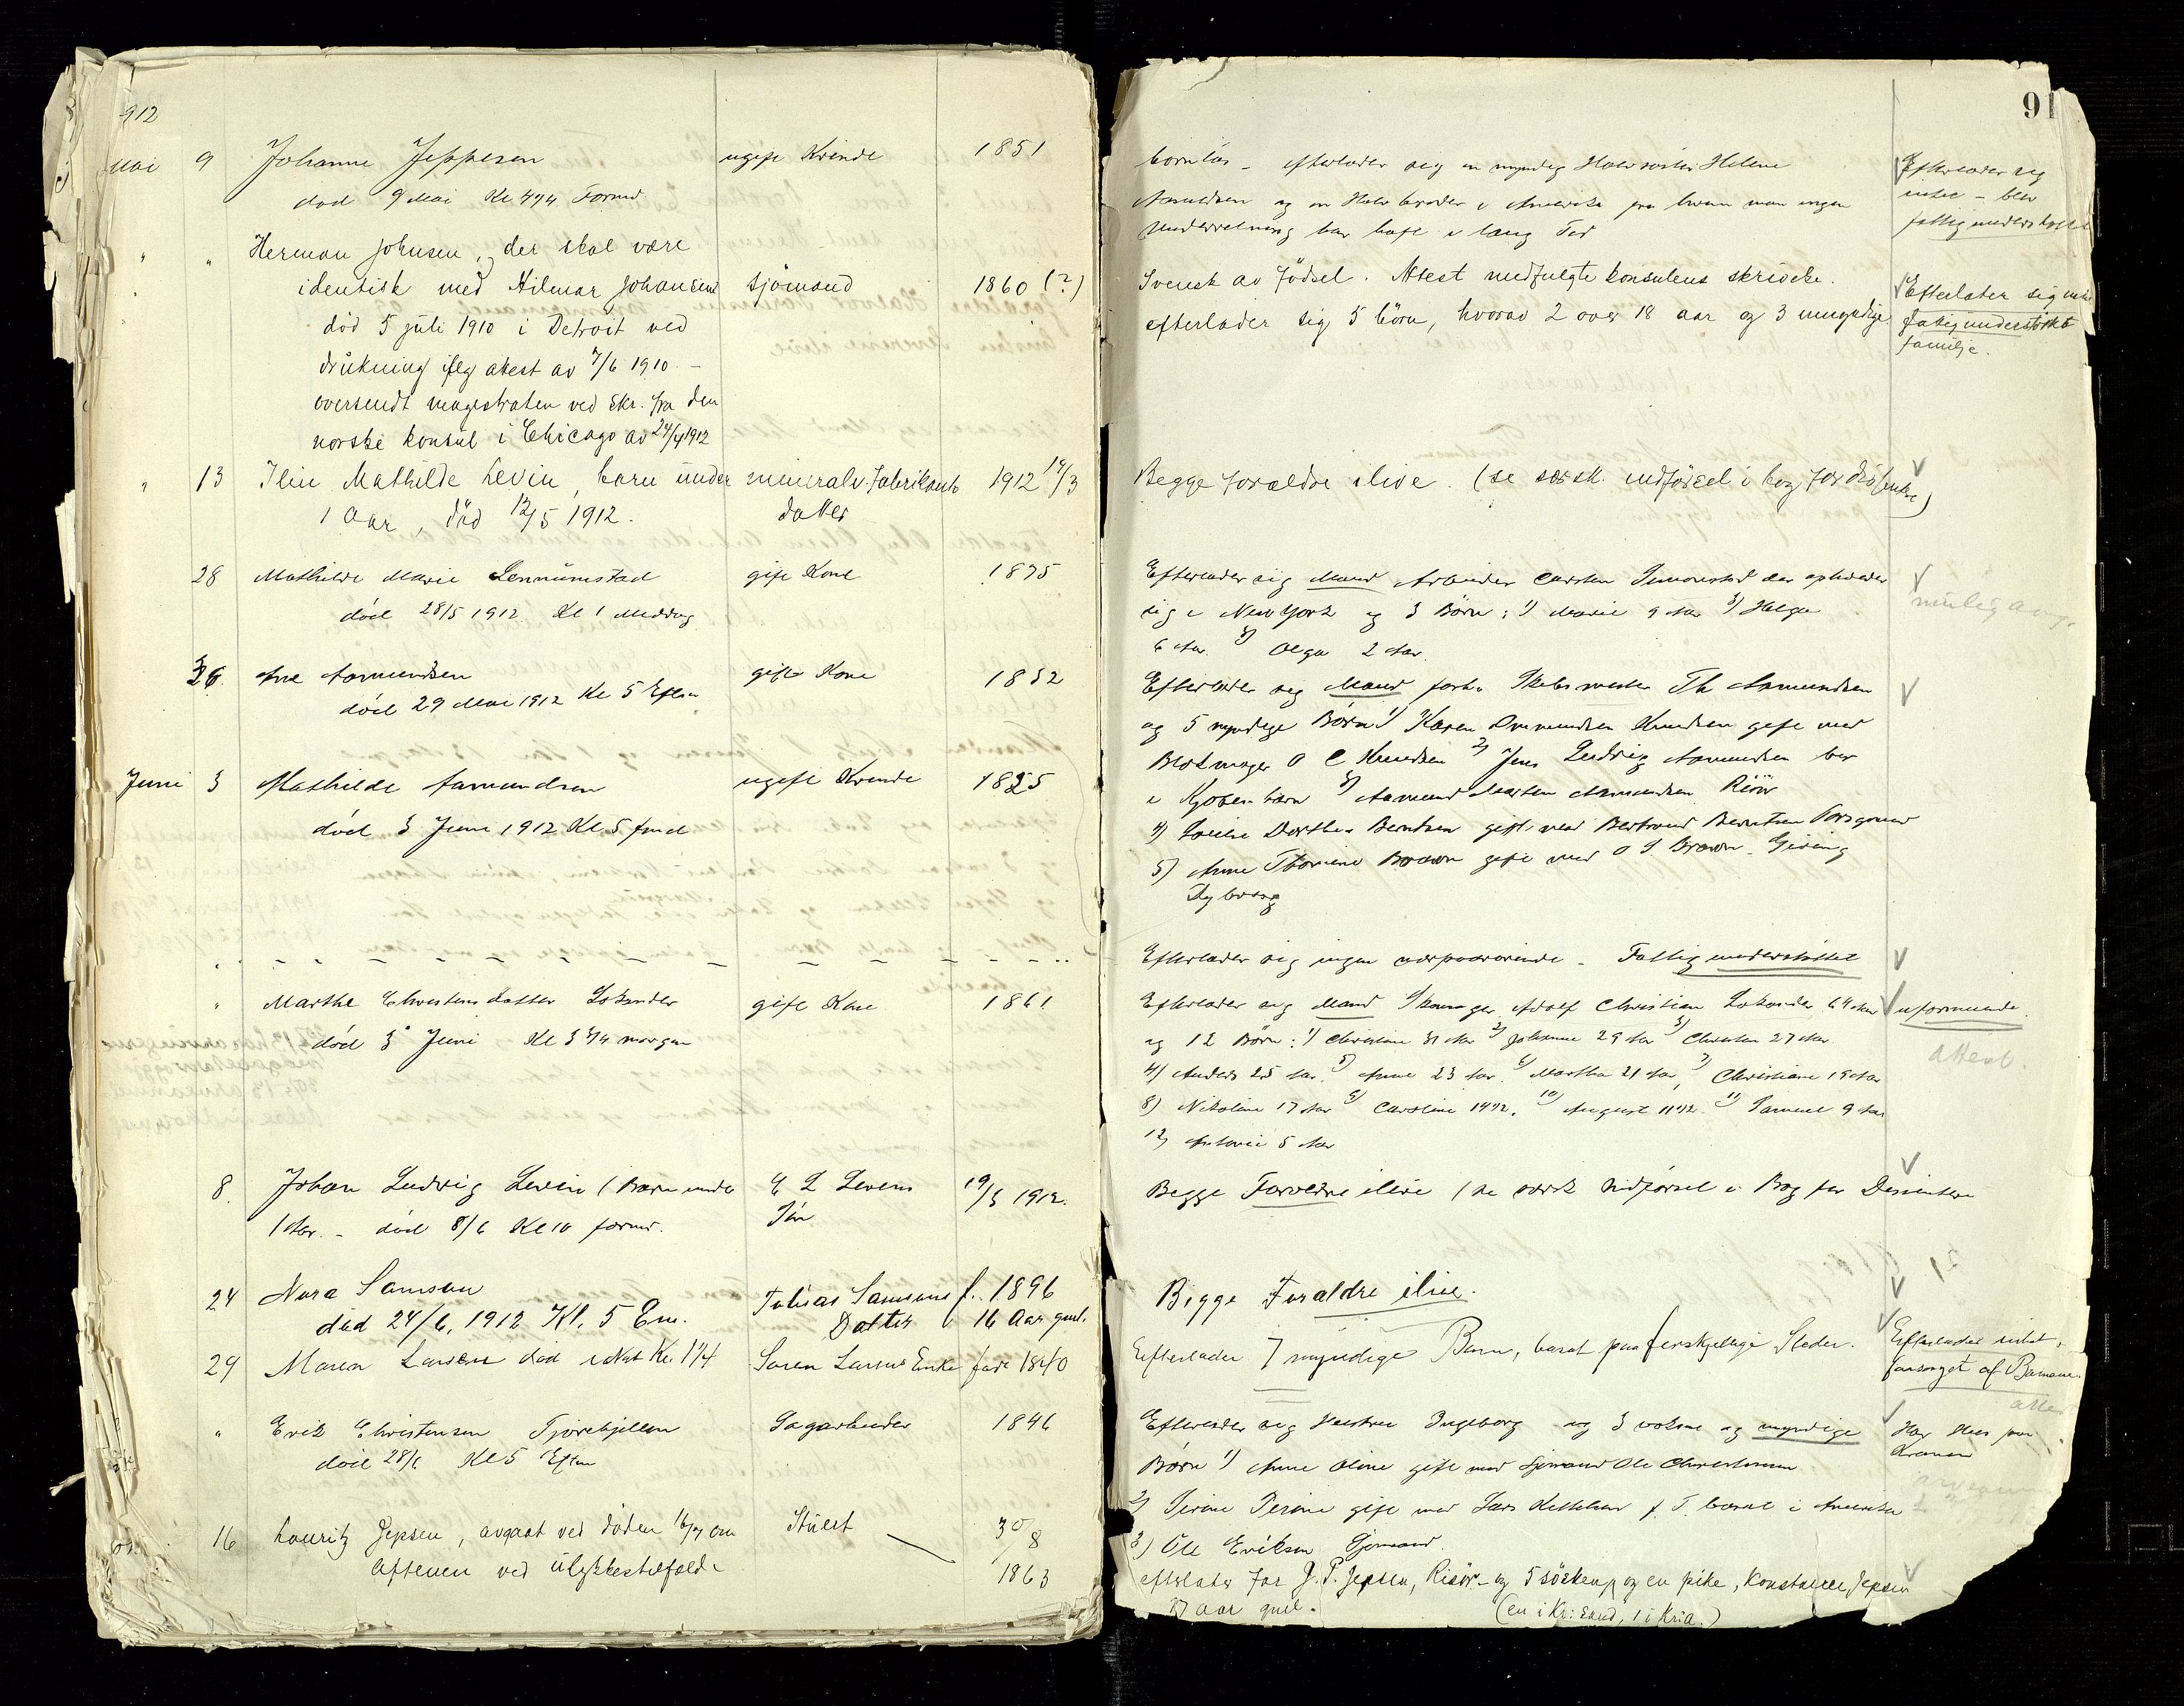 912
Mai 9 Johanne Jeppesen ugift Kvinde 1851
død 9 Mai Kl 4 3/4 Formd
" " Herman Johnsen, der skal være
identisk med Hilmar Johansen sjömand 1860 (?)
död 5 juli 1910 i Detroit ved
drukning iflg attest av 7/6 1910 –
oversendt magistraten ved Skr. fra den
norske konsul i Chicago av 24/4 1912
" 13 Mathilde Levin, barn under mineralv. fabrikants 1912 14/3
1 Aar, död 12/5 1912. datter
28 Mathilde Marie gift Kone 1875
död 28/5 1912 Kl 1 Middag
Aamundsen gift Kone 1852
död 29 Mai 1912 Kl 5 Efterm
Juni 3 Mathilde Aamundsen ugift Kvinde 1825
død 3 Juni 1912 Kl 5 fmd
" Marthe Christensdatter gift Kone 1861
død 3 Juni Kl 3 3/4 morgen
8. Johan Ludvig Levin (Barn under E L Levins 19/3 1912.
1 Aar. – död 8/6 Kl 10 formd. Søn
24 Nora Samsen Tobias Samsens f. 1896
død 24/6. 1912 Kl. 5 Em. Datter 16 Aar gml.
29 Maren Larsen død i Nat Kl. 1 1/4 Søren Larsens Enke født 1840
" Erik Christensen Sagarbeider 1846
død 28/6 Kl 5 Efterm
16 Lauritz Jepsen, avgaat ved döden 16/7 om Stuert 30/8
Aftenen ved ulykkestilfælde 1863
91
barnløs – efterlader sig en myndig Halvsøster Helene
og en Halvbroder i Amerika fra hvem man ingen
Underretning har havt i lang Tid
Efterlader sig
intet – blev
fattigunderstøttet
Svensk av Födsel. Attest medfulgte konsulens skrivelse.
efterlader sig 5 börn, hvorav 2 over 18 aar og 3 umyndige
Efterlater sig intet
fattigunderstöttet
familje.
Begge forældre ilive. (se særsk. indförsel i bog for dissentere)
Efterlader sig Mand Arbeider Carsten der opholder
sig i New York og 3 Børn: 1) Marie 9 Aar 2) Helga
6 Aar. 3) Olga 2 Aar.
Efterlader sig Mand Th Aamundsen
og 5 myndige Børn 1) Karen Knudsen gift med
O C Knudsen 2) Jens Ludvig Aamundsen bor
i Kjøbenhavn 3) Aamund Aamundsen Risør
4) Dorthea Berntsen gift med Bertrand Berntsen Porsgrund
5) Anne gift med O S
Dybvaag
Efterlader sig ingen – Fattigunderstøttet
Efterlader sig Mand Adolf Christian 64 Aar uformuende
og 12 Børn: 1) Christine 31 Aar 2) Johanne 29 Aar 3) Christen 27 Aar
4) Anders 25 Aar. 5) Anne 23 Aar. 6) Martha 21 Aar, 7) Christiane 19 Aar
8) Nikoline 17 Aar 9) Caroline 14 1/2. 10) August 11 1/2. 11) Samuel 9 Aar
12) 5 Aar
Attest.
Begge Forældre ilive (se særsk Indførsel i Bog for Dissentere
Begge Forældre ilive.
Efterlader 7 myndige Børn, bosat paa forskjellige Steder.
Efterlader intet,
forsørget af Børnene.
Efterlader sig Hustru Ingeborg og 3 voksne og myndige
Børn 1) Anne Oline gift med Sjømand Ole Christensen
2) gift med Lars f. T. bosat i Amerika
3) Ole Eriksen Sjømand.
Har Hus paa
efterlater far J. P. Jepsen, Risör – og 5 söskend og en pike, Konstance Jepsen
aar gml. (en i Kr:sand, 1 i Kr:a.)